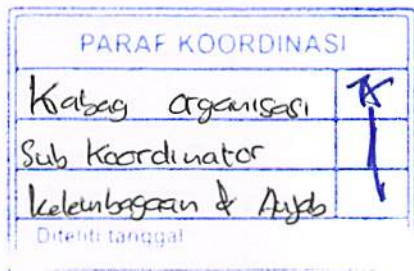 PARAF KOORDINASI
Kabag organisasi
Sub Koordinator
kelembagaan & Anjab
Diteliti tanggal